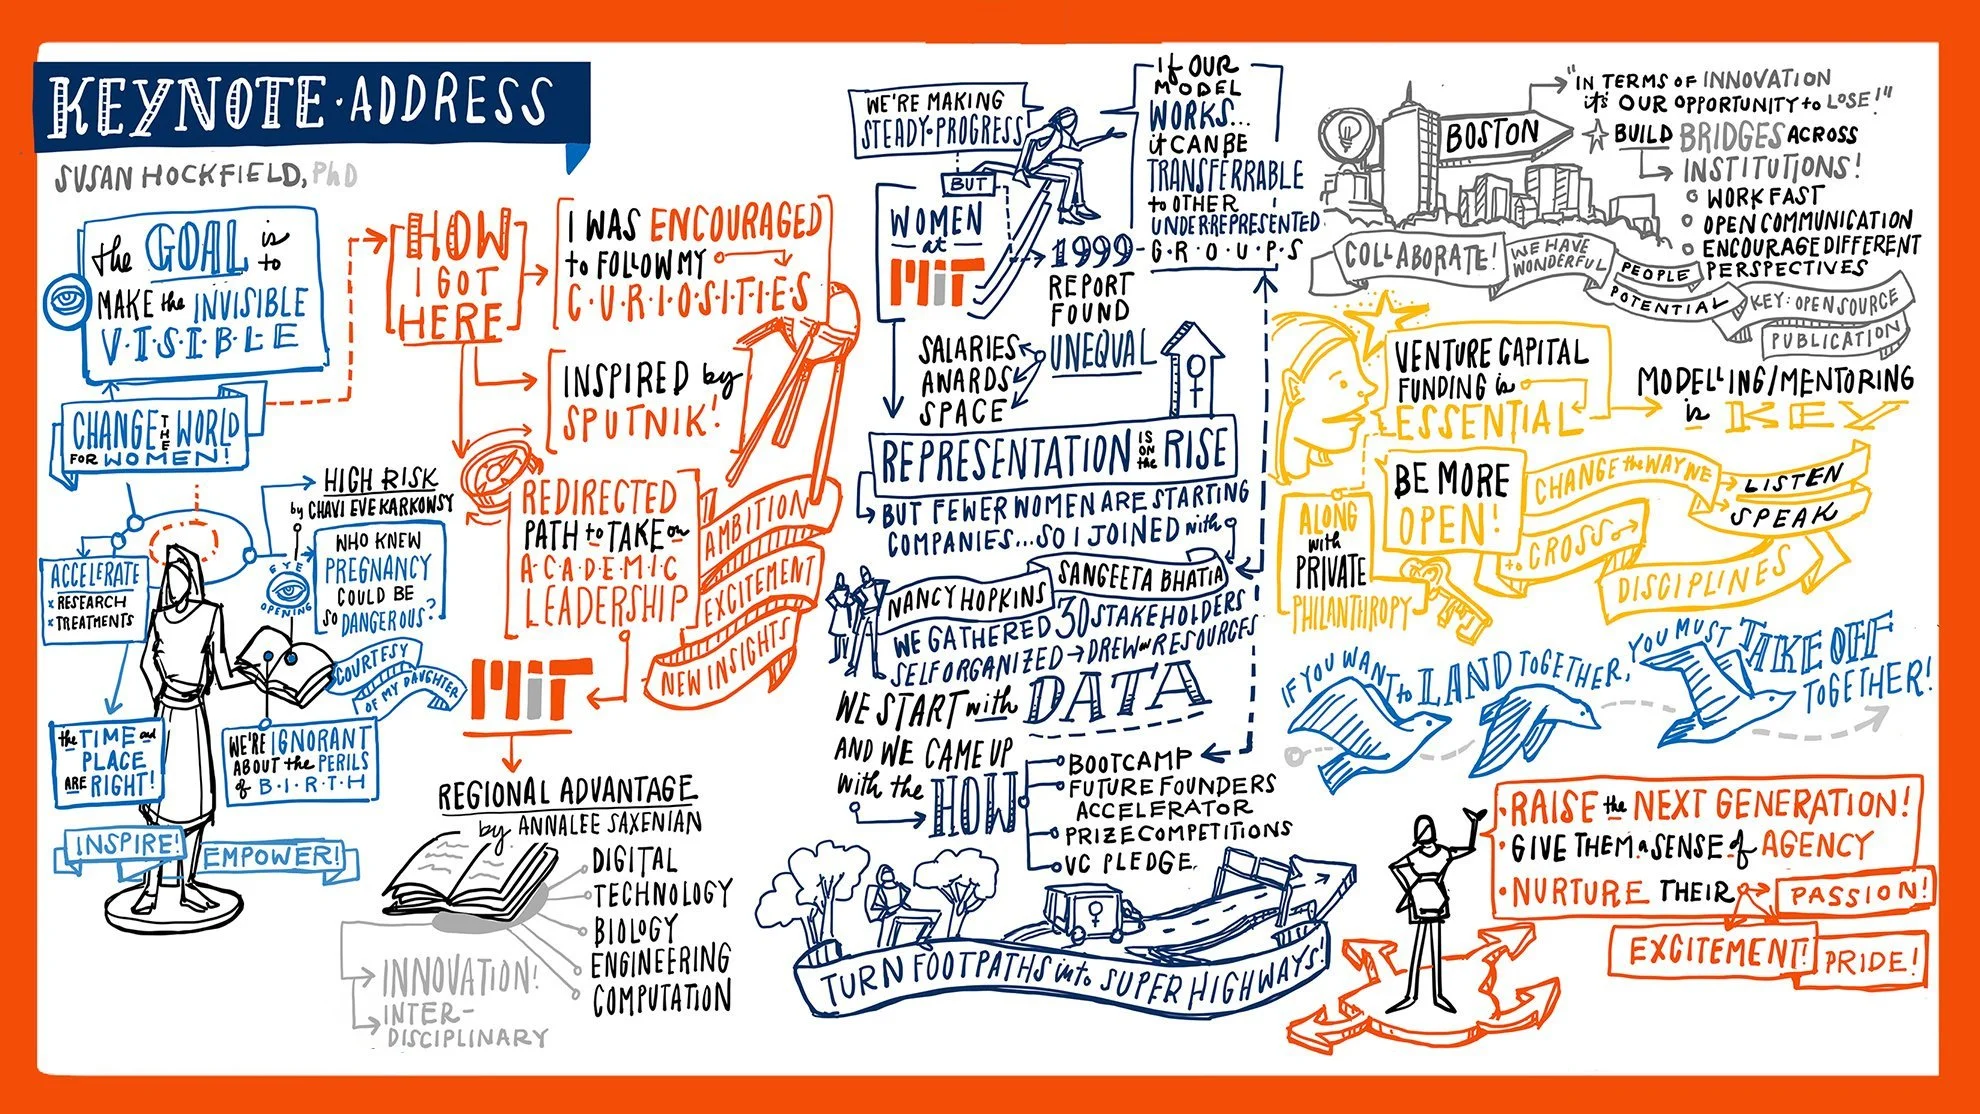 KEYNOTE·ADDRESS
SUSAN HOCKFIELD, PhD
the GOAL is to
MAKE the INVISIBLE
V·I·S·I·B·L·E
CHANGE THE WORLD
FOR WOMEN!
HIGH RISK
by CHAVI EVE KARKOWSY
WHO KNEW
PREGNANCY
COULD BE
SO DANGEROUS?
EYE
OPENING
ACCELERATE
× RESEARCH
× TREATMENTS
COURTESY
OF MY DAUGHTER
the TIME and
PLACE
ARE RIGHT!
WE'RE IGNORANT
ABOUT the PERILS
of B·I·R·T·H
INSPIRE!
EMPOWER!
HOW
I GOT
HERE
I WAS ENCOURAGED
to FOLLOW MY
C·U·R·I·O·S·I·T·I·E·S
INSPIRED by
SPUTNIK!
REDIRECTED
PATH to TAKE on
A·C·A·D·E·M·I·C
LEADERSHIP
AMBITION
EXCITEMENT
NEW INSIGHTS
MIT
REGIONAL ADVANTAGE
by ANNALEE SAXENIAN
DIGITAL
TECHNOLOGY
BIOLOGY
ENGINEERING
COMPUTATION
INNOVATION!
INTER-
DISCIPLINARY
WE'RE MAKING
STEADY·PROGRESS
BUT
WOMEN
at
MIT
1999
REPORT
FOUND
UNEQUAL
SALARIES
AWARDS
SPACE
If OUR
MODEL
WORKS...
it CAN BE
TRANSFERRABLE
to OTHER
UNDER-REPRESENTED
G·R·O·U·P·S
REPRESENTATION IS ON the RISE
BUT FEWER WOMEN ARE STARTING
COMPANIES...SO I JOINED with
NANCY HOPKINS
SANGEETA BHATIA
WE GATHERED 30 STAKEHOLDERS
SELF ORGANIZED → DREW on RESOURCES
WE START with DATA
AND WE CAME UP
with the HOW
BOOTCAMP
FUTURE FOUNDERS
ACCELERATOR
PRIZE COMPETITIONS
VC PLEDGE
TURN FOOTPATHS into SUPER HIGHWAYS!
BOSTON
"IN TERMS OF INNOVATION
it's OUR OPPORTUNITY to LOSE!"
BUILD BRIDGES ACROSS
INSTITUTIONS!
WORK FAST
OPEN COMMUNICATION
ENCOURAGE DIFFERENT
PERSPECTIVES
COLLABORATE!
WE HAVE
WONDERFUL
PEOPLE
POTENTIAL
KEY: OPEN SOURCE
PUBLICATION
VENTURE CAPITAL
FUNDING is
ESSENTIAL
MODELLING/MENTORING
is KEY
ALONG
with
PRIVATE
PHILANTHROPY
BE MORE
OPEN!
CHANGE the WAY WE
LISTEN
SPEAK
to CROSS
DISCIPLINES
IF YOU WANT to LAND TOGETHER,
YOU MUST TAKE OFF
TOGETHER!
· RAISE the NEXT GENERATION!
· GIVE THEM a SENSE of AGENCY
· NURTURE THEIR
PASSION!
EXCITEMENT!
PRIDE!